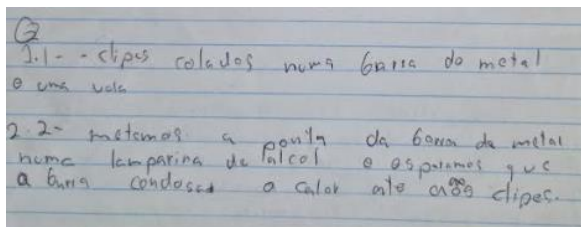 2
2.1 - - clipes colados numa barra do metal
e uma vela
2.2- metemos a ponta da barra de metal
numa lamparina de alcol e esparamos que
a barra a calor ate aos clipes.